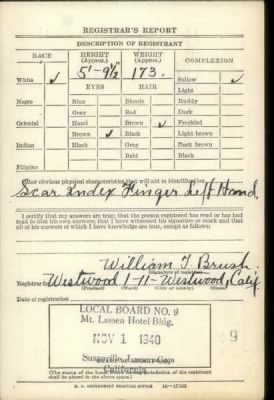 REGISTRAR'S REPORT
DESCRIPTION OF REGISTRANT
RACE HEIGHT (Approx.) WEIGHT (Approx.) COMPLEXION
White ✓ 5'-9½ 173. Sallow ✓
EYES HAIR Light
Negro Blue Blonde Ruddy
Gray Red Dark
Oriental Hazel Brown ✓ Freckled
Brown ✓ Black Light brown
Indian Black Gray Dark brown
Bald Black
Filipino
Other obvious physical characteristics that will aid in identification
Scar Index Finger Left Hand.
I certify that my answers are true; that the person registered has read or has had read to him his own answers; that I have witnessed his signature or mark and that all of his answers of which I have knowledge are true, except as follows:
William T. Brush
(Signature of registrar)
Registrar for Westwood 1-11-Westwood, Calif.
(Precinct) (Ward) (City or county) (State)
Date of registration
LOCAL BOARD NO. 9
Mt. Lassen Hotel Bldg.
NOV 1 1940
9
Susanville, Lassen Co.
California
(The stamp of the Local Board having jurisdiction of the registrant shall be placed in the above space.)
U. S. GOVERNMENT PRINTING OFFICE